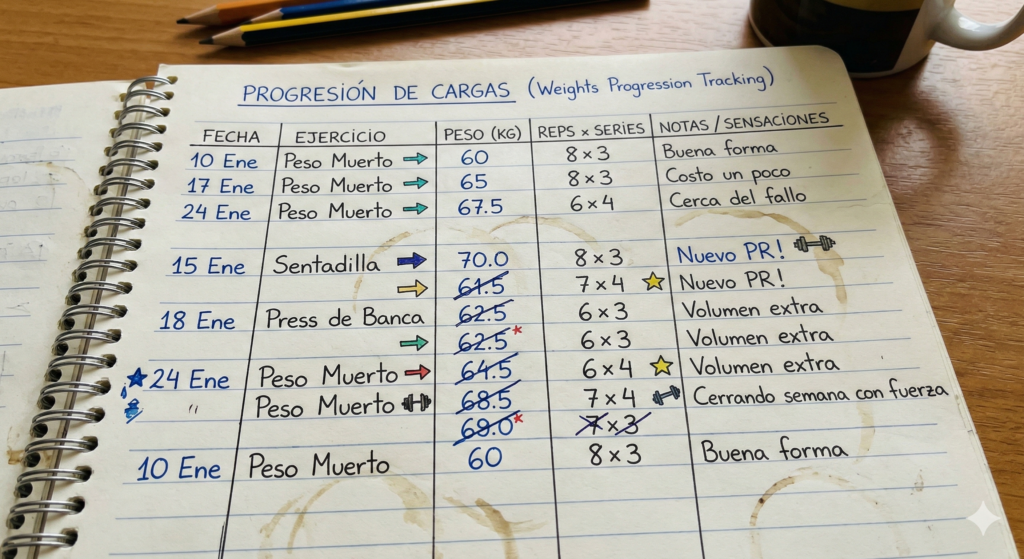 PROGRESIÓN DE CARGAS (Weights Progression Tracking)
FECHA EJERCICIO PESO (KG) REPS x SERIES NOTAS / SENSACIONES
10 Ene Peso Muerto → 60 8 x 3 Buena forma
17 Ene Peso Muerto → 65 8 x 3 Costo un poco
24 Ene Peso Muerto → 67.5 6 x 4 Cerca del fallo
15 Ene Sentadilla → 70.0 8 x 3 Nuevo PR!
→ 61.5 7 x 4 Nuevo PR!
18 Ene Press de Banca 62.5 6 x 3 Volumen extra
→ 62.5* 6 x 3 Volumen extra
24 Ene Peso Muerto → 64.5 6 x 4 Volumen extra
" Peso Muerto 68.5 7 x 4 Cerrando semana con fuerza
69.0* 7 x 3
10 Ene Peso Muerto 60 8 x 3 Buena forma